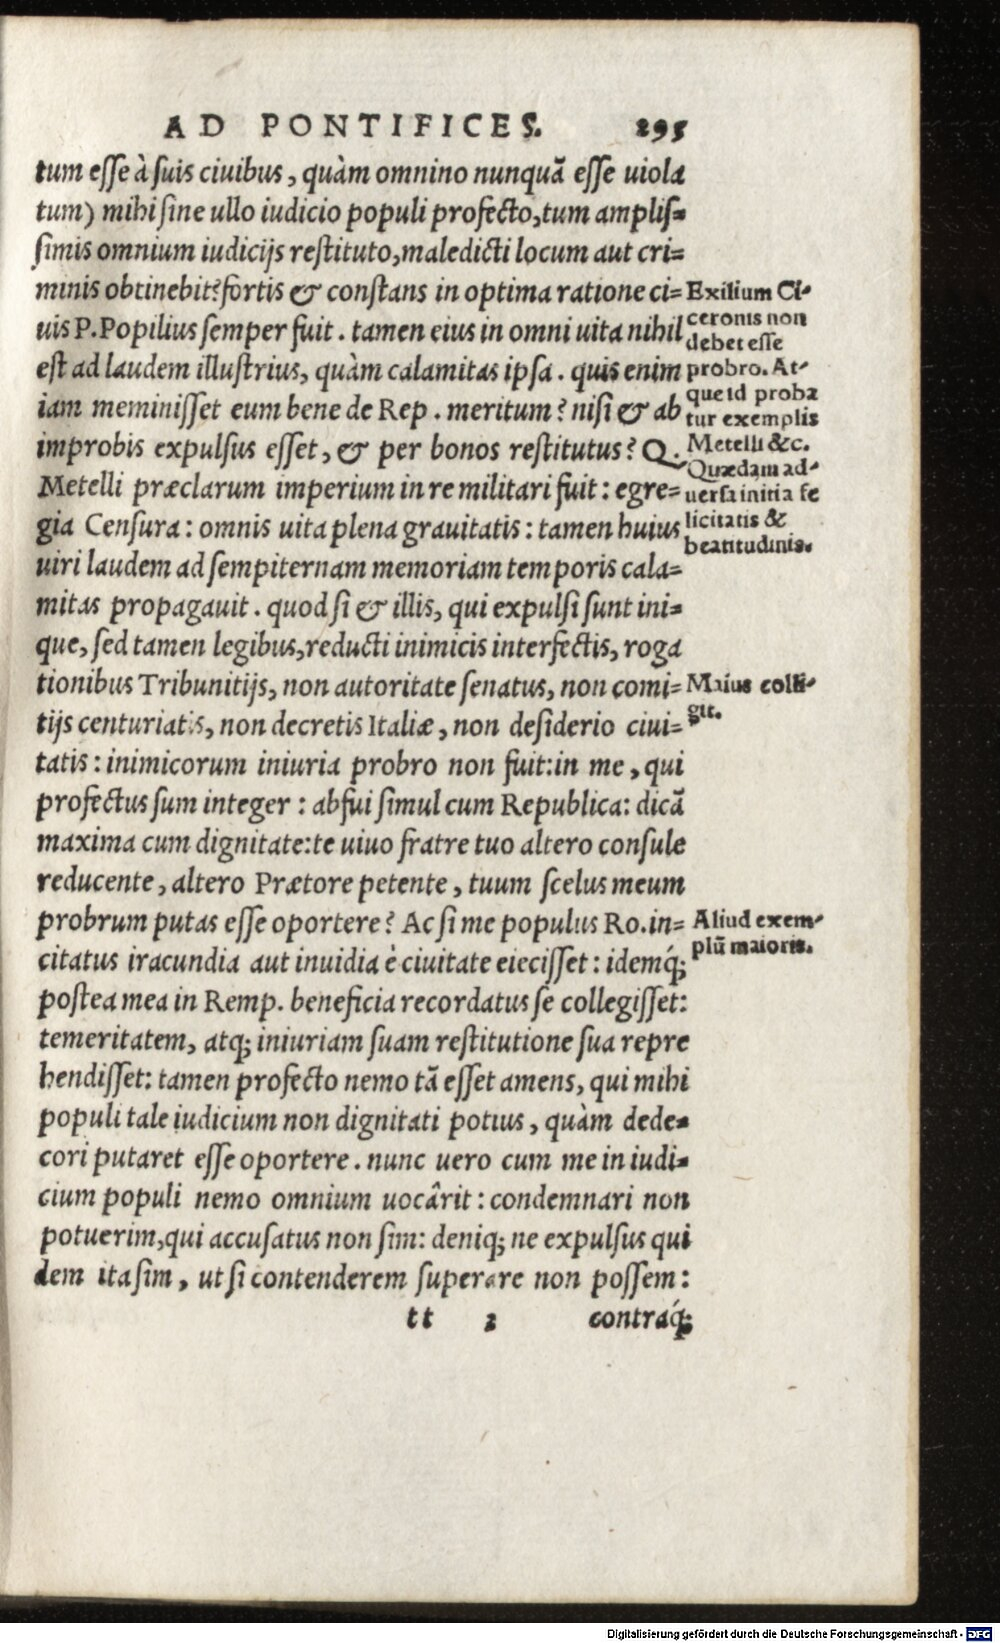 AD PONTIFICES. 295
tum esse à suis ciuibus, quàm omnino nunquã esse uiola
tum) mihi sine ullo iudicio populi profecto, tum amplis=
simis omnium iudicijs restituto, maledicti locum aut cri=
minis obtinebit? fortis & constans in optima ratione ci=
uis P. Popilius semper fuit. tamen eius in omni uita nihil
est ad laudem illustrius, quàm calamitas ipsa. quis enim
iam meminisset eum bene de Rep. meritum? nisi & ab
improbis expulsus esset, & per bonos restitutus? Q.
Metelli præclarum imperium in re militari fuit: egre=
gia Censura: omnis uita plena grauitatis: tamen huius
uiri laudem ad sempiternam memoriam temporis cala=
mitas propagauit. quod si & illis, qui expulsi sunt ini=
que, sed tamen legibus, reducti inimicis interfectis, roga
tionibus Tribunitijs, non autoritate senatus, non comi=
tijs centuriatis, non decretis Italiæ, non desiderio ciui=
tatis: inimicorum iniuria probro non fuit: in me, qui
profectus sum integer: abfui simul cum Republica: dicã
maxima cum dignitate: te uiuo fratre tuo altero consule
reducente, altero Prætore petente, tuum scelus meum
probrum putas esse oportere? Ac si me populus Ro. in=
citatus iracundia aut inuidia è ciuitate eiecisset: idemq́;
postea mea in Remp. beneficia recordatus se collegisset:
temeritatem, atq; iniuriam suam restitutione sua repre
hendisset: tamen profecto nemo tã esset amens, qui mihi
populi tale iudicium non dignitati potius, quàm dede=
cori putaret esse oportere. nunc uero cum me in iudi=
cium populi nemo omnium uocârit: condemnari non
potuerim, qui accusatus non sim: deniq; ne expulsus qui
dem ita sim, ut si contenderem superare non possem:
tt 2 contraq́;
Exilium Ci-
ceronis non
debet esse
probro. At-
que id proba
tur exemplis
Metelli &c.
Quædam ad-
uersa initia fe
licitatis &
beatitudinis.
Maius colli-
git.
Aliud exem-
plũ maioris.
Digitalisierung gefördert durch die Deutsche Forschungsgemeinschaft - DFG